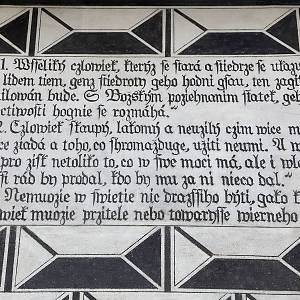 1. Wsseliký czlowiek, kterýz se stará a sstiedrze se ukazu
lidem tiem, genz sstiedroty geho hodni gsau, ten zag
milowán bude. S Bozským poziehnanim statek, geb
ctiwosti hognie se rozmáhá."
2. Czlowiek skaupý, lakomý a neuzilý czim wice m
ce zádá a toho, co shromazduge, uziti neumi. A w
pro zisk netoliko to, co w swe moci má, ale i wl
sti rád by prodal, kdo by mu za ni nieco dal."
Nemuozie w swietie nic drazssiho býti, gako
wiek muozie przitele nebo towarysse wierneho